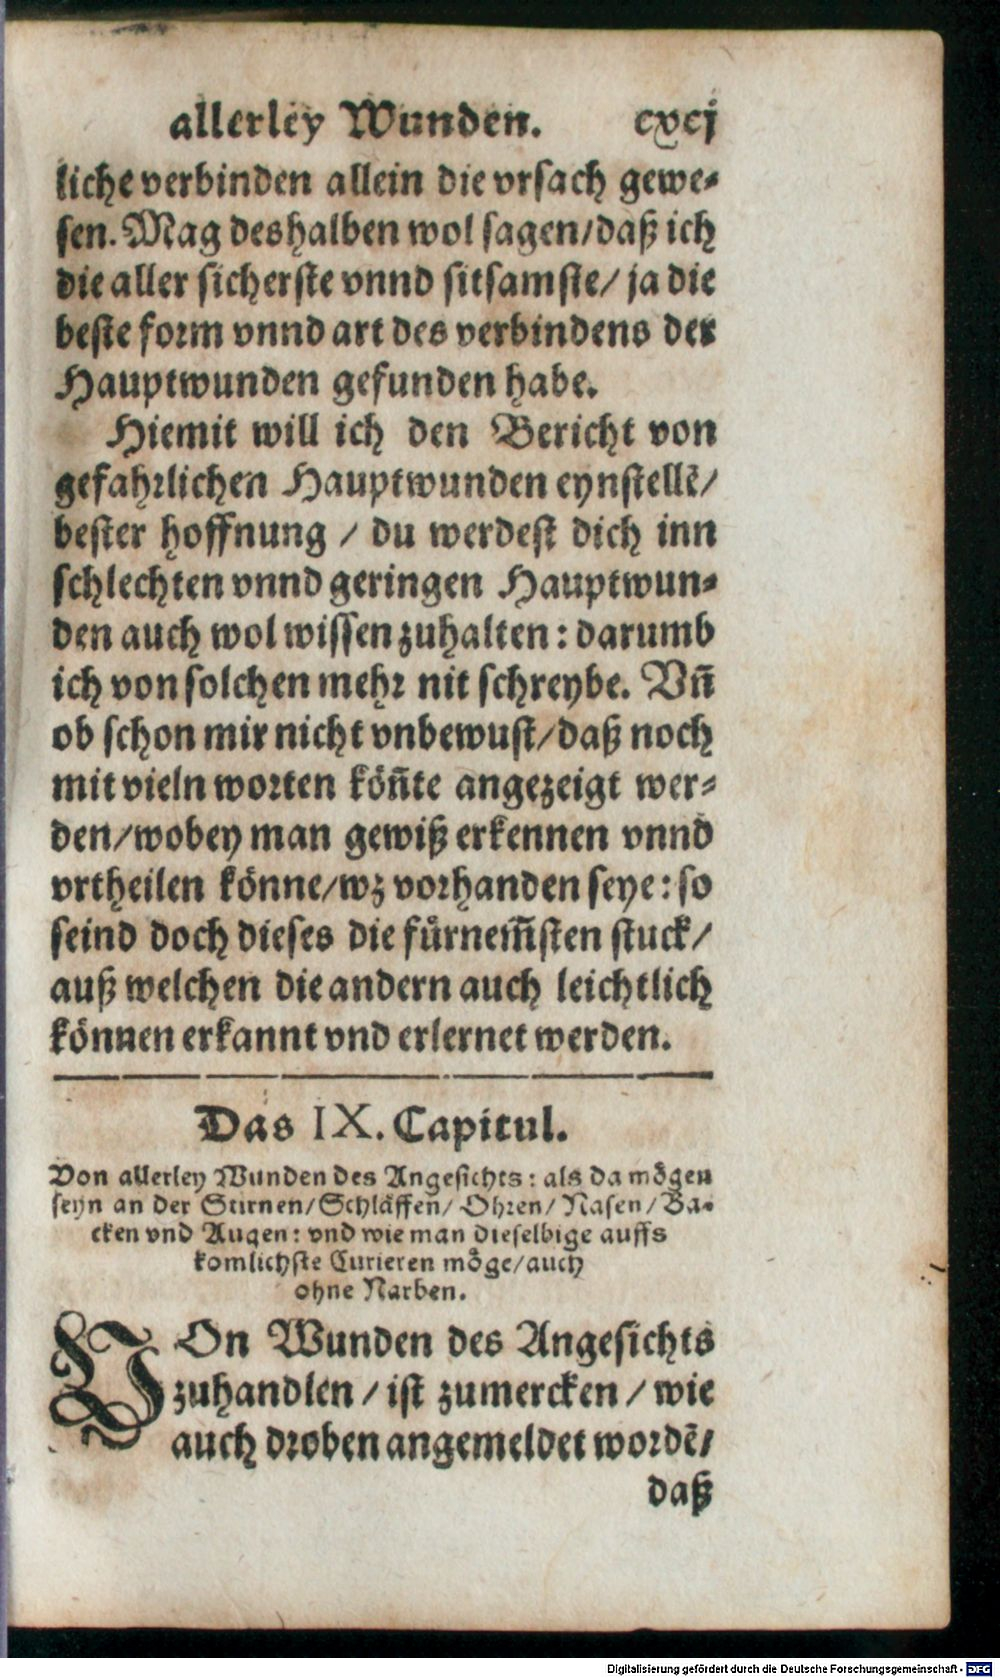 allerley Wunden. cxcj
liche verbinden allein die vrsach gewe-
sen. Mag deshalben wol sagen/daß ich
die aller sicherste vnnd sitsamste/ ja die
beste form vnnd art des verbindens der
Hauptwunden gefunden habe.
Hiemit will ich den Bericht von
gefahrlichen Hauptwunden eynstellē/
bester hoffnung / du werdest dich inn
schlechten vnnd geringen Hauptwun-
den auch wol wissen zuhalten: darumb
ich von solchen mehr nit schreybe. Vn̄
ob schon mir nicht vnbewust/daß noch
mit vieln worten kön̄te angezeigt wer-
den/wobey man gewiß erkennen vnnd
vrtheilen könne/wz vorhanden seye: so
seind doch dieses die fürnem̄sten stuck/
auß welchen die andern auch leichtlich
können erkannt vnd erlernet werden.
Das IX. Capitul.
Von allerley Wunden des Angesichts: als da mögen
seyn an der Stirnen/Schläffen/ Ohren/Nasen/Ba-
cken vnd Augen: vnd wie man dieselbige auffs
komlichste Curieren möge/auch
ohne Narben.
VOn Wunden des Angesichts
zuhandlen / ist zumercken / wie
auch droben angemeldet wordē/
daß
Digitalisierung gefördert durch die Deutsche Forschungsgemeinschaft - DFG